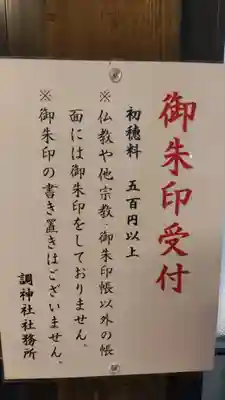 御朱印受付
初穂料 五百円以上
※仏教や他宗教・御朱印帳以外の帳
面には御朱印をしておりません。
※御朱印の書き置きはございません。
調神社社務所